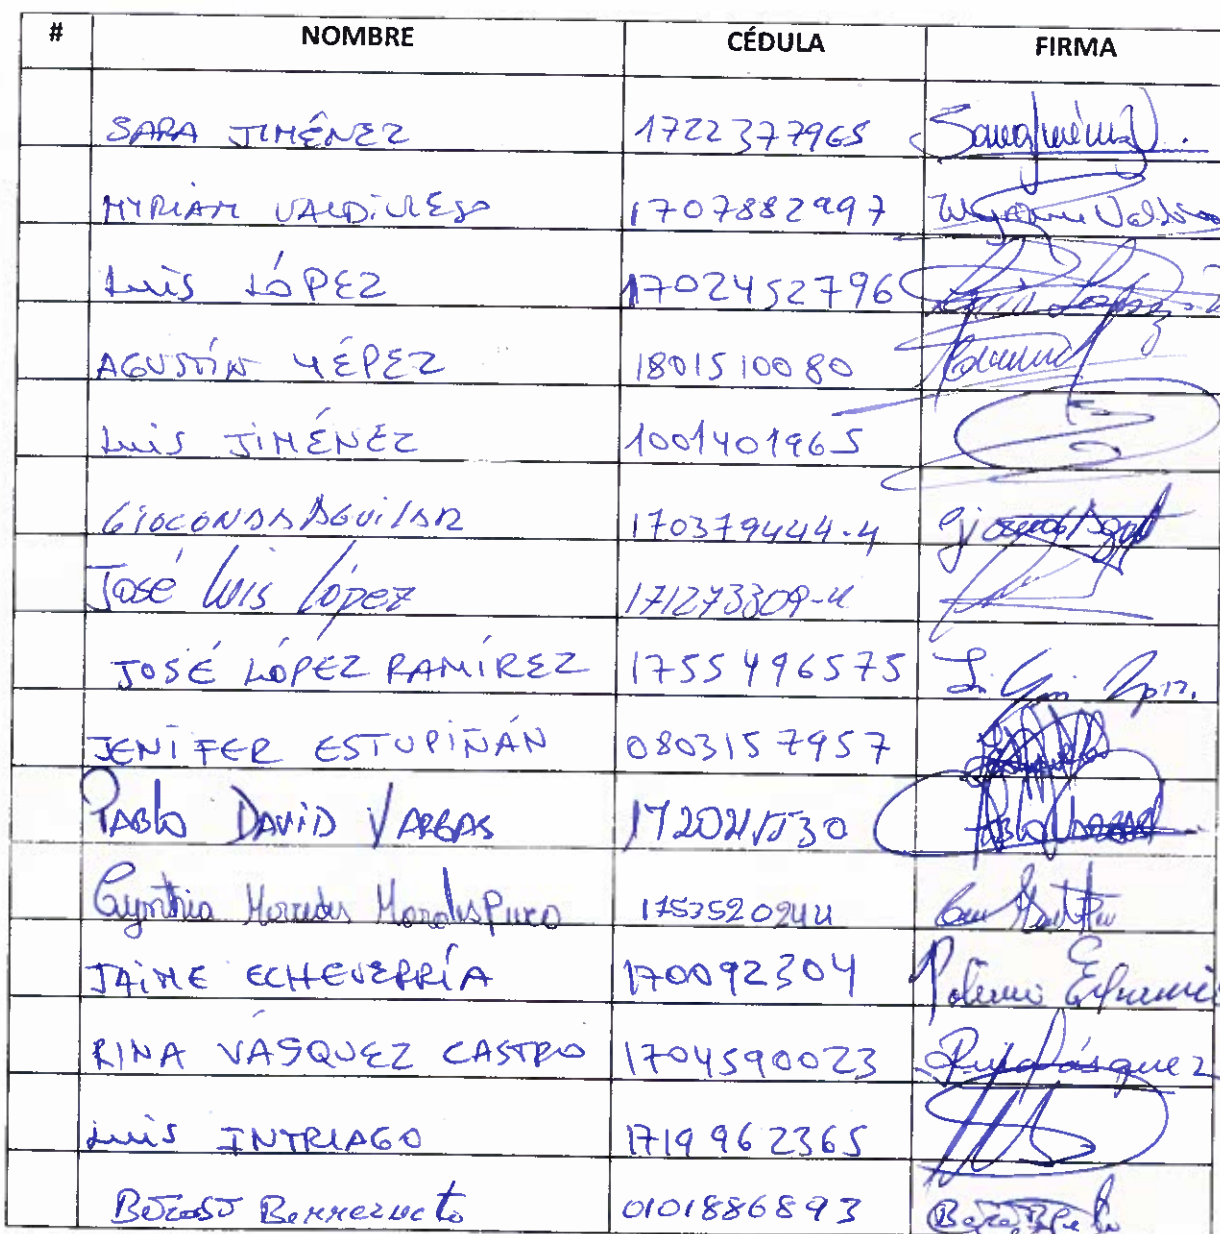 # NOMBRE CÉDULA FIRMA
SARA JIMÉNEZ 1722377965
MYRIAM VALDIVIESO 1707882997
Luis LÓPEZ 1702452796 Luis López
AGUSTÍN YÉPEZ 1801510080
Luis JIMÉNEZ 1001401965
GIOCONDA AGUILAR 170379444-4
José Luis López 171273309-4
JOSÉ LÓPEZ RAMÍREZ 1755496575
JENIFER ESTUPIÑÁN 0803157957
PABLO DAVID VARGAS
Cynthia Mercedes Morales 1753520244
JAIME ECHEVERRÍA 170092304
RINA VÁSQUEZ CASTRO 1704590023 Rina Vásquez
Luis INTRIAGO 1719962365
0101886893